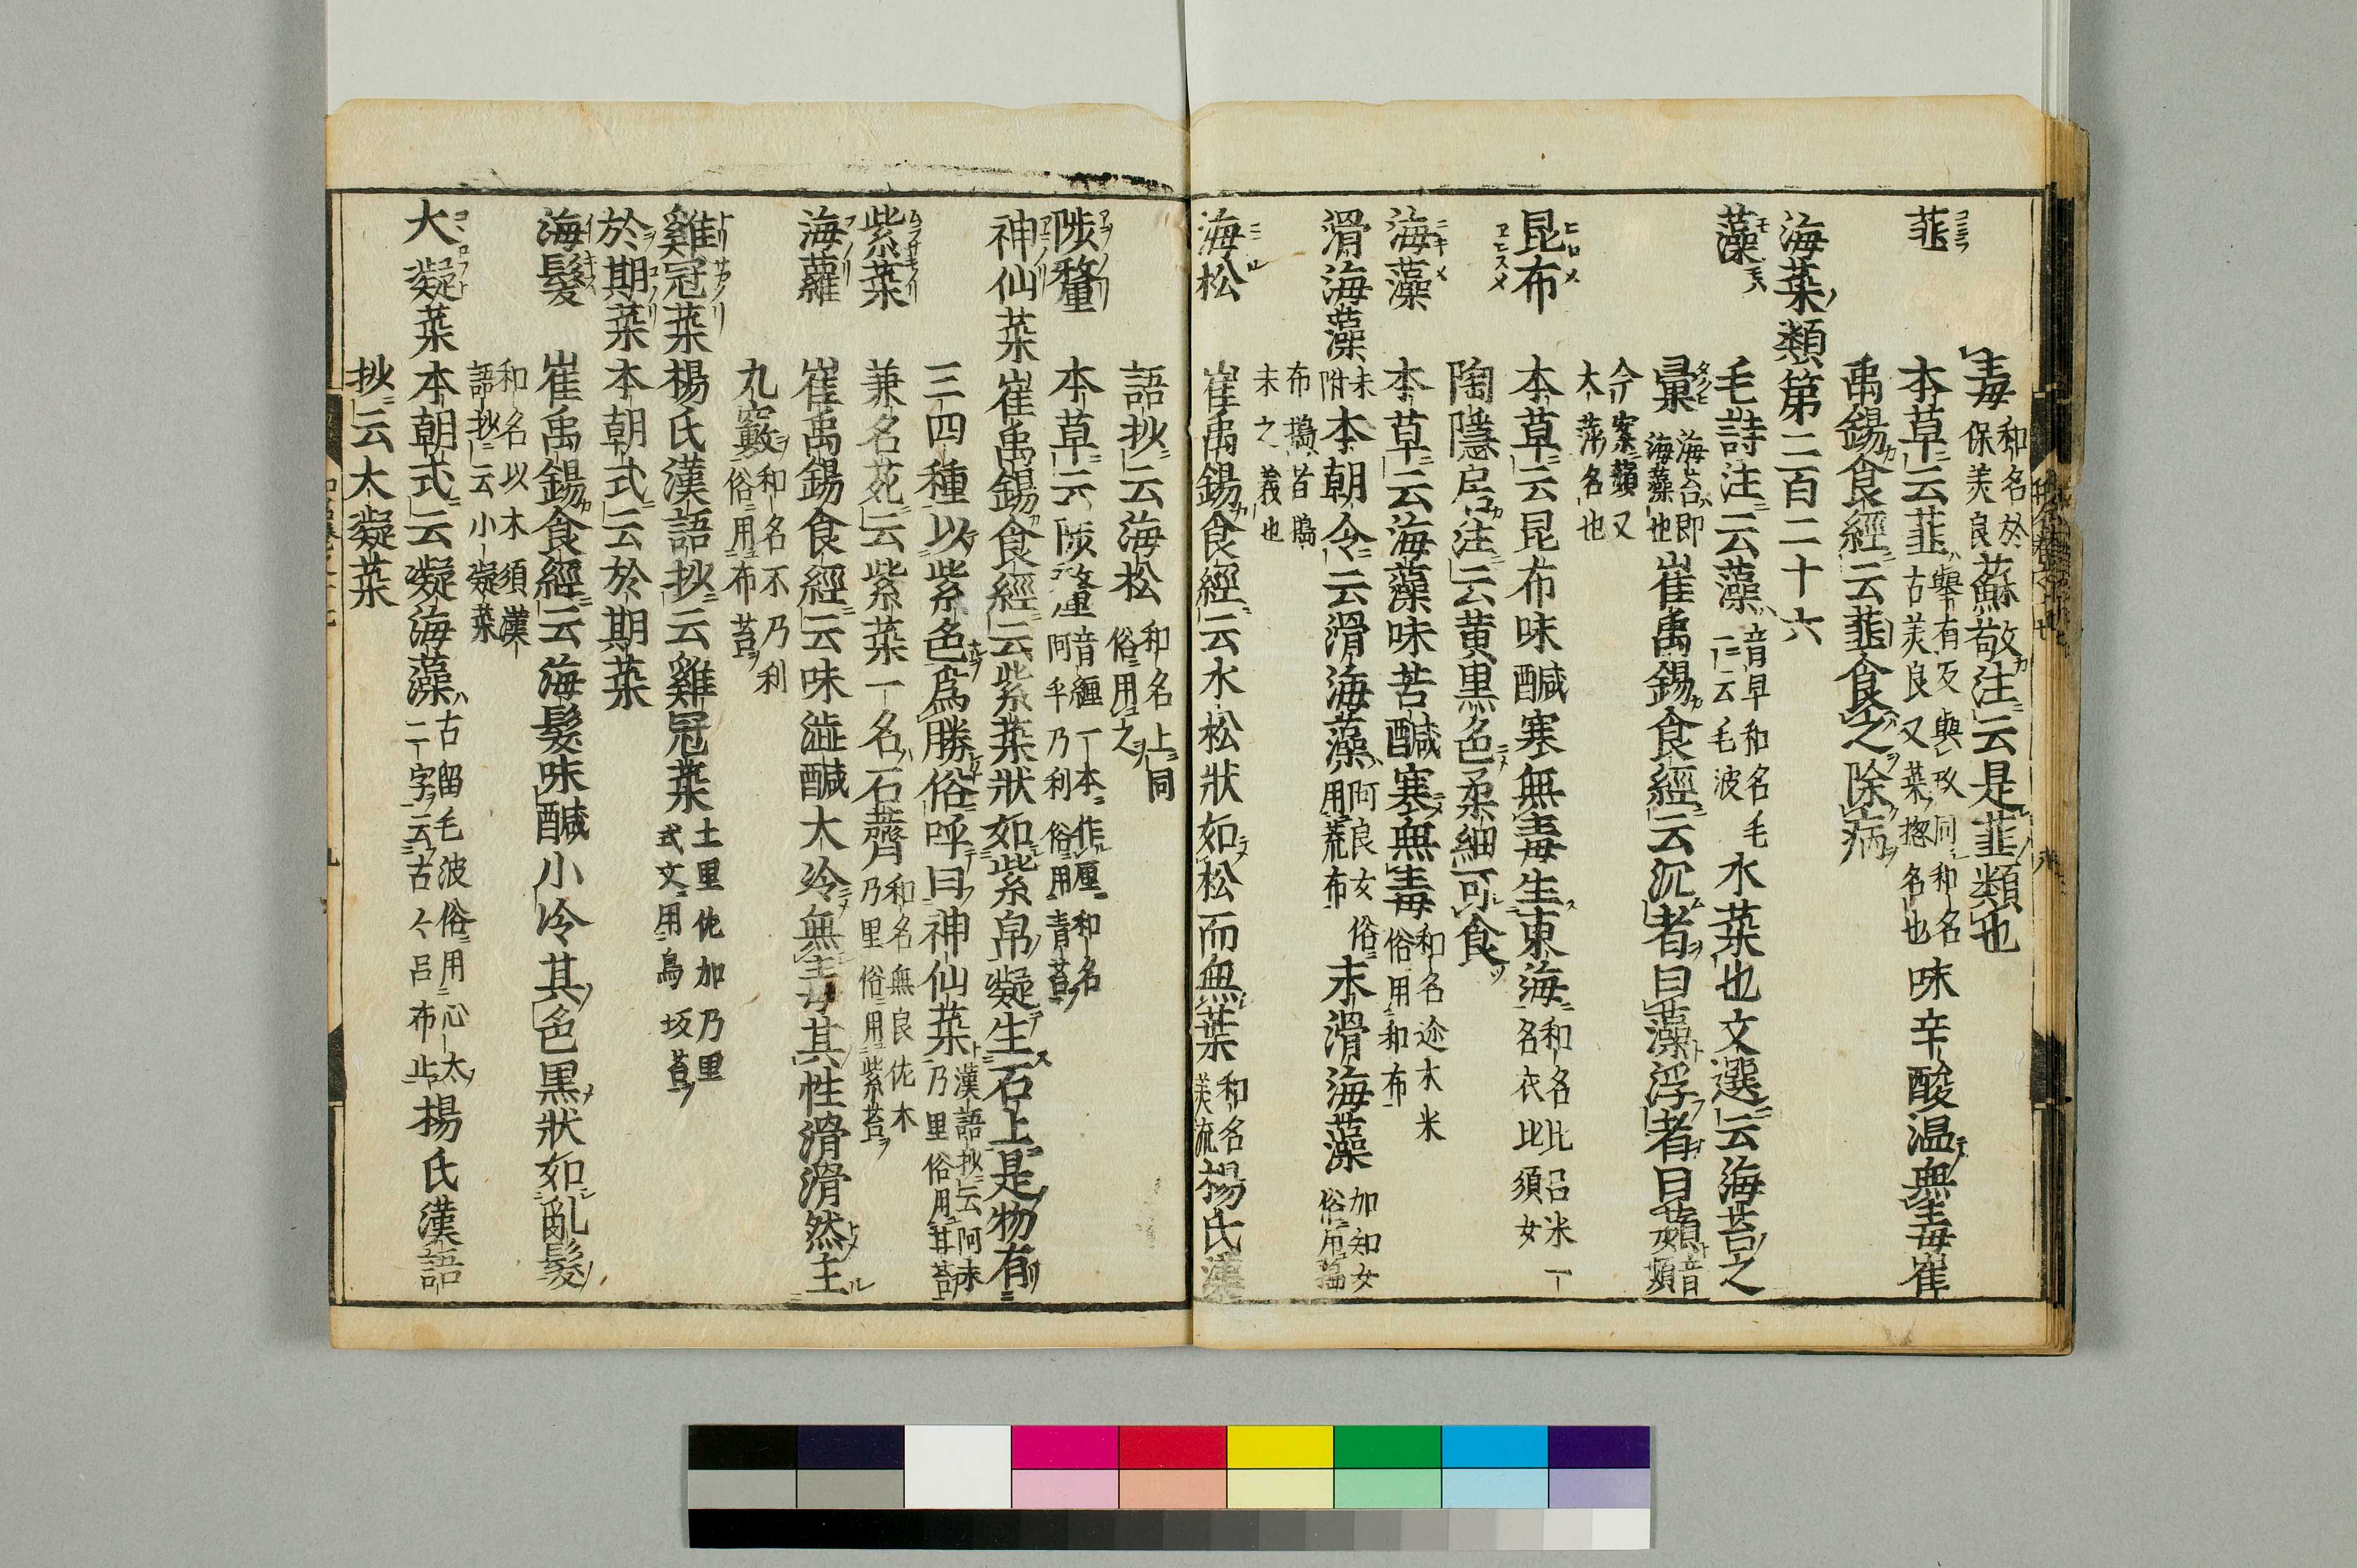 毒 和名於保美良 蘇敬注云是韮類也
韮 本草云韮 擧有反與玖同和名古美良又菜惣名也 味辛酸温無毒崔
禹錫食經云韮食之除病
海菜類第二百二十六
藻 毛詩注云藻 音早和名毛一云毛波 水菜也文選云海苔之
彙 海苔即海藻也 崔禹錫食經云沉者曰藻浮者曰蘋 音頻
今案蘋又大萍名也
昆布 本草云昆布味醎寒無毒生東海 和名比呂米一名衣比須女
陶隱居注云黄黒色柔細可食
海藻 本草云海藻味苦醎寒無毒 和名迩木米俗用和布
滑海藻 末附 本朝令云滑海藻 阿良女俗用荒布 末滑海藻 加知女俗用
布搗者搗末之義也
海松 崔禹錫食經云水松狀如松而無葉 和名美流 揚氏漢
語抄云海松 和名上同俗用之
陟釐 本草云陟釐 音纏一本作厘和名阿乎乃利俗用青苔
神仙菜 崔禹錫食經云紫菜狀如紫帛凝生石上是物有
三四種以紫色爲勝俗呼曰神仙菜 漢語抄云阿末乃里俗用甘苔
紫菜 兼名苑云紫菜一名石薺 和名無良佐木乃里俗用紫苔
海蘿 崔禹錫食經云味澁醎大冷無毒其性滑滑然主
九竅 和名不乃利俗用布苔
雞冠菜 揚氏漢語抄云雞冠菜 土里佐加乃里式文用鳥坂苔
於期菜 本朝式云於期菜
海髮 崔禹錫食經云海髮味醎小冷其色黒狀如亂髮
和名以木須漢語抄云小凝菜
大凝菜 本朝式云凝海藻 古留毛波俗用心太二字云古々呂布止 揚氏漢語
抄云大凝菜